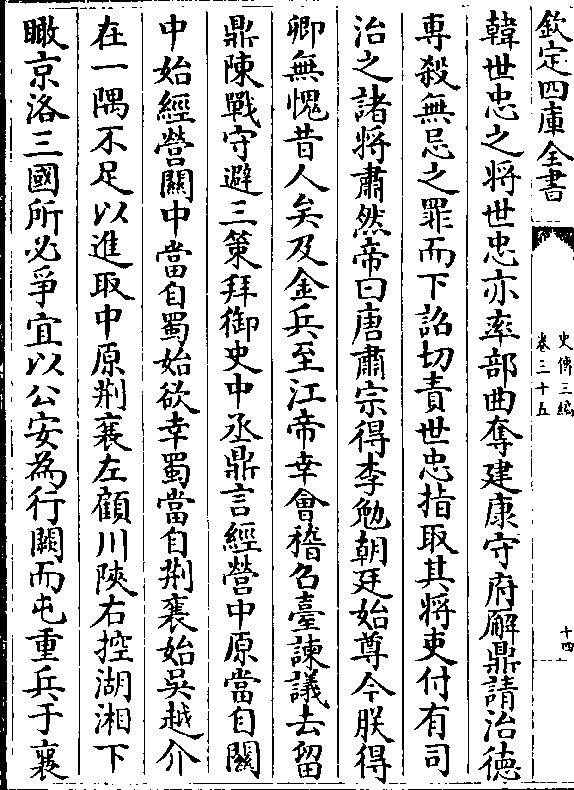 欽定四庫全書
史傳三編
卷三十五
十四
韓世忠之將世忠亦率部曲奪建康守府廨鼎請治德
専殺無忌之罪而下詔切責世忠指取其將吏付有司
治之諸將肅然帝曰唐肅宗得李勉朝廷始尊今朕得
卿無愧昔人矣及金兵至江帝幸會稽召臺諫議去留
鼎陳戰守避三策拜御史中丞鼎言經營中原當自闗
中始經營闗中當自蜀始欲幸蜀當自荆襄始吳越介
在一隅不足以進取中原荆襄左顧川陜右控湖湘下
瞰京洛三國所必爭宜以公安為行闕而屯重兵于襄